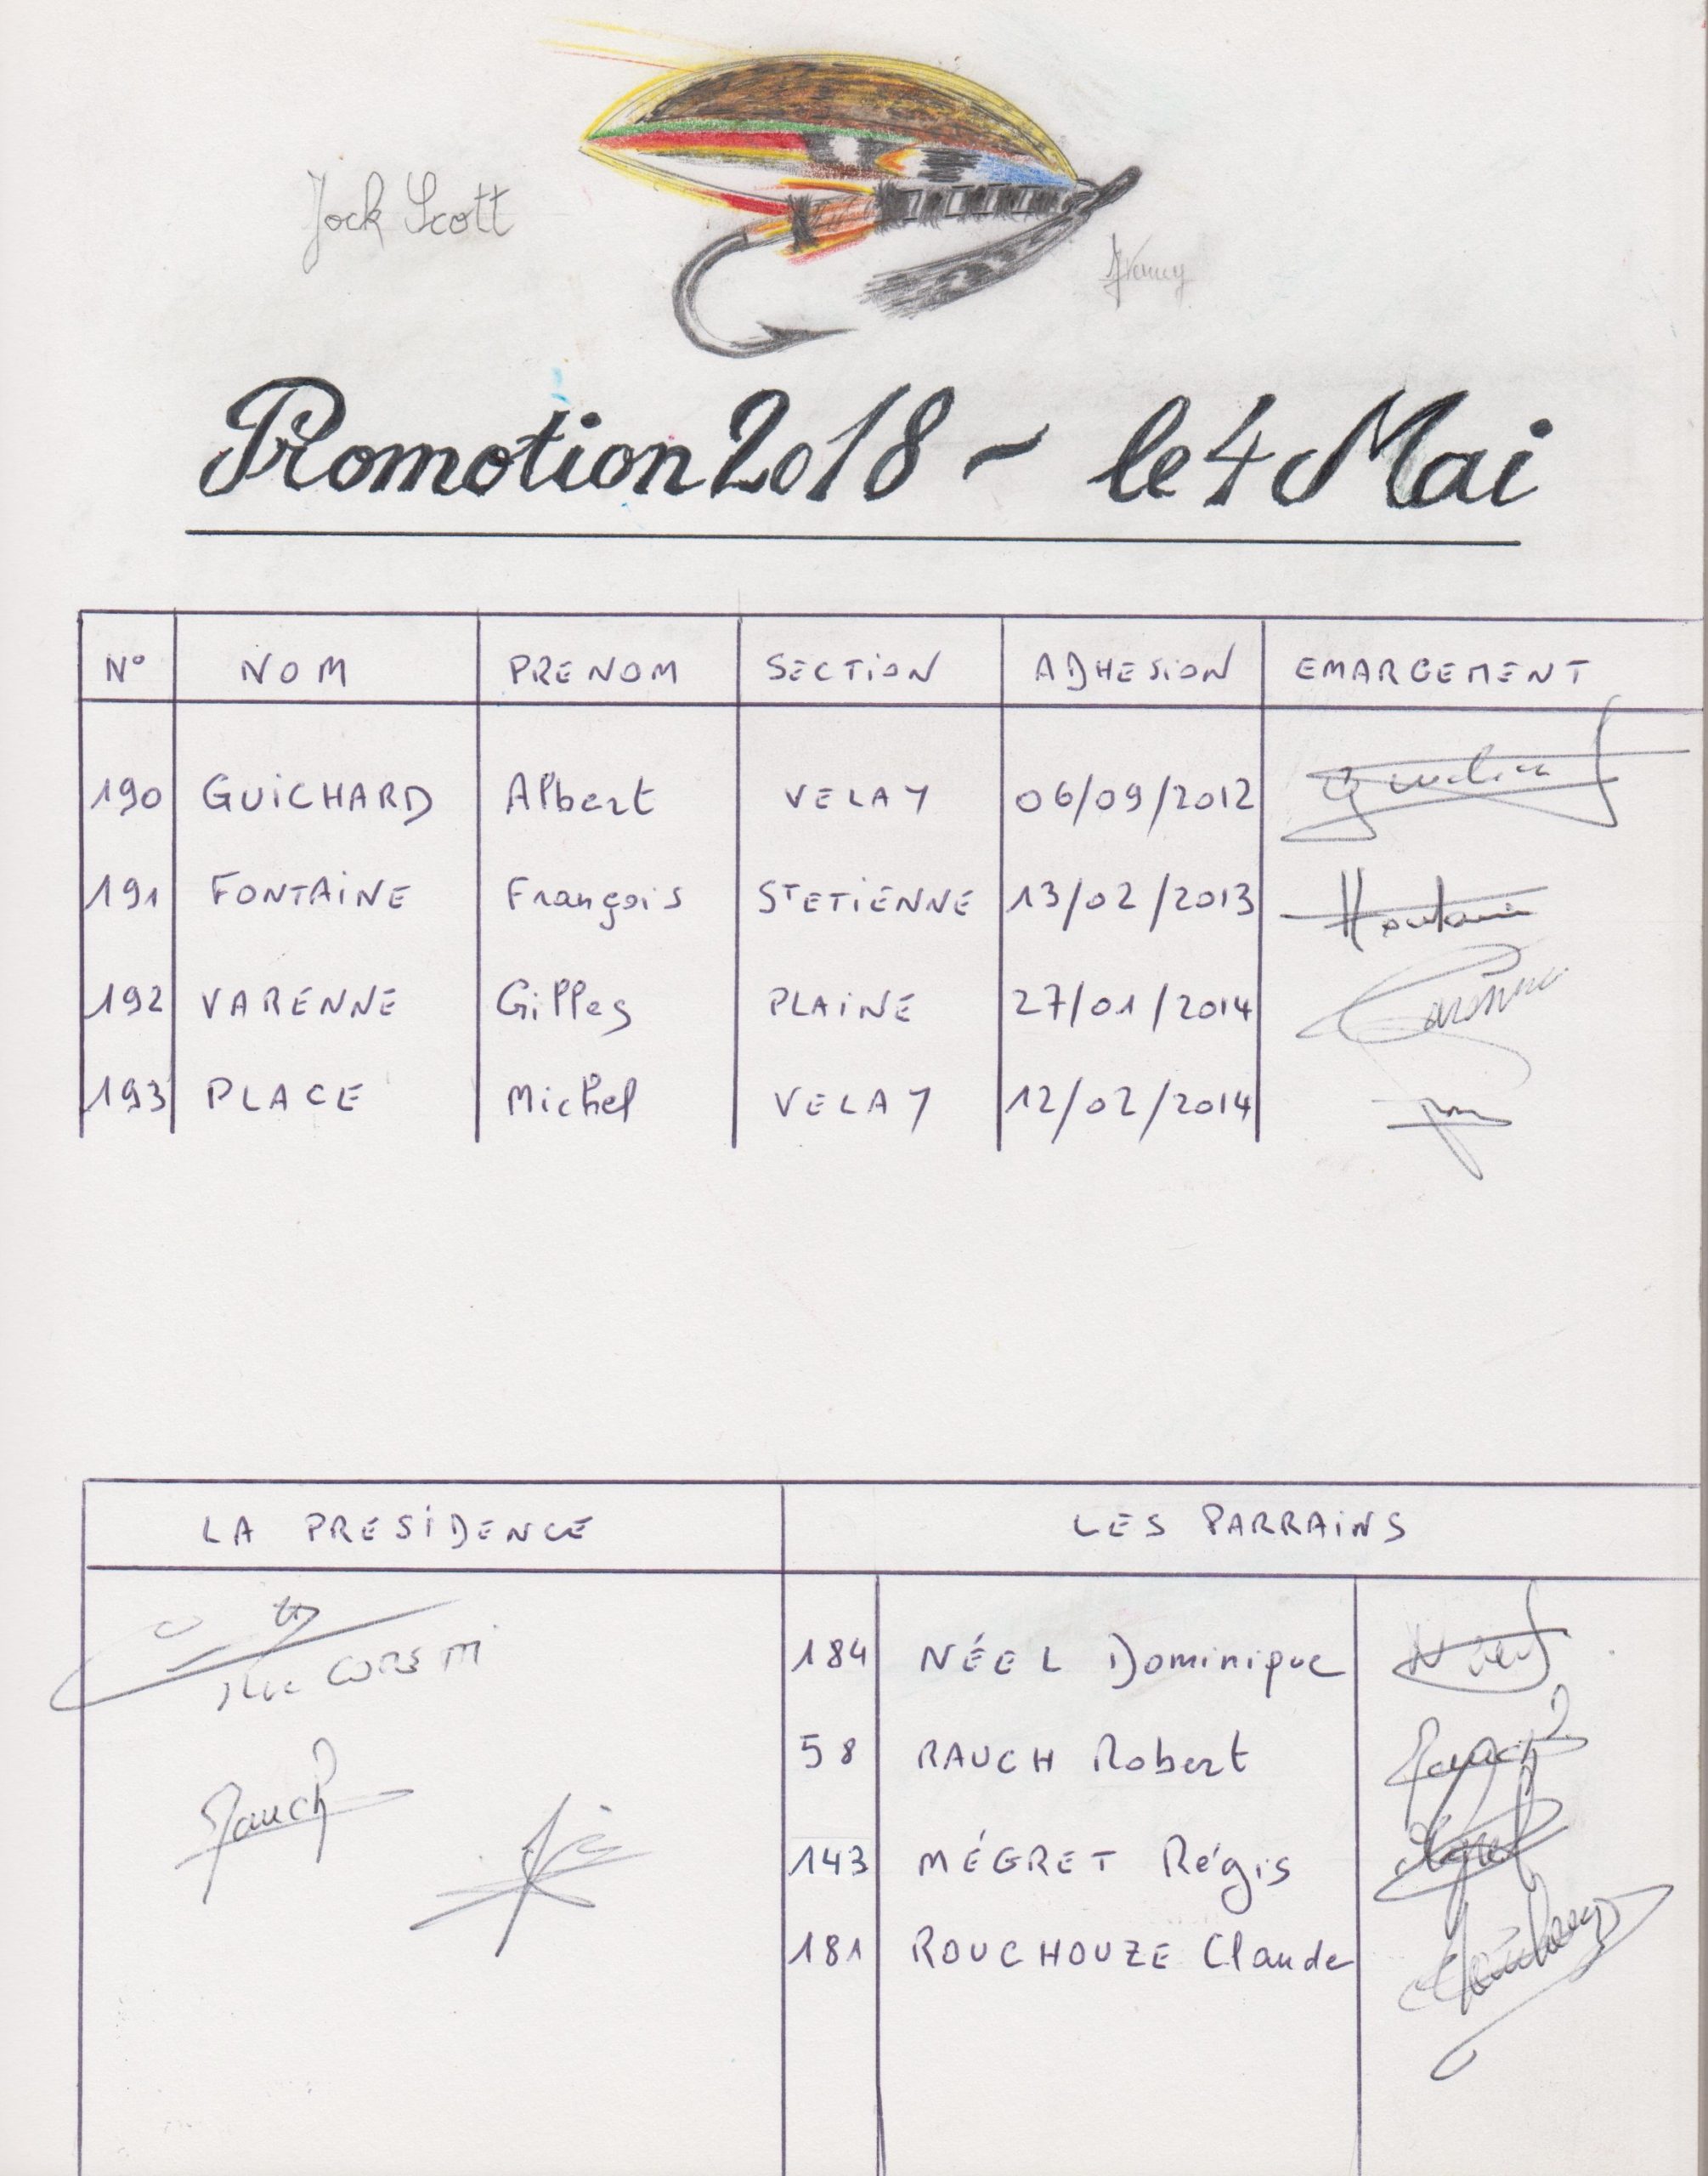 Jock Scott
Promotion 2018 ~ le 4 Mai
N° NOM PRENOM SECTION ADHESION EMARGEMENT
190 GUICHARD Albert VELAY 06/09/2012
191 FONTAINE François ST ETIENNE 13/02/2013
192 VARENNE Gilles PLAINE 27/01/2014
193 PLACE Michel VELAY 12/02/2014
LA PRESIDENCE LES PARRAINS
184 NÉEL Dominique
58 RAUCH Robert
Rauch
143 MÉGRET Régis
181 ROUCHOUZE Claude